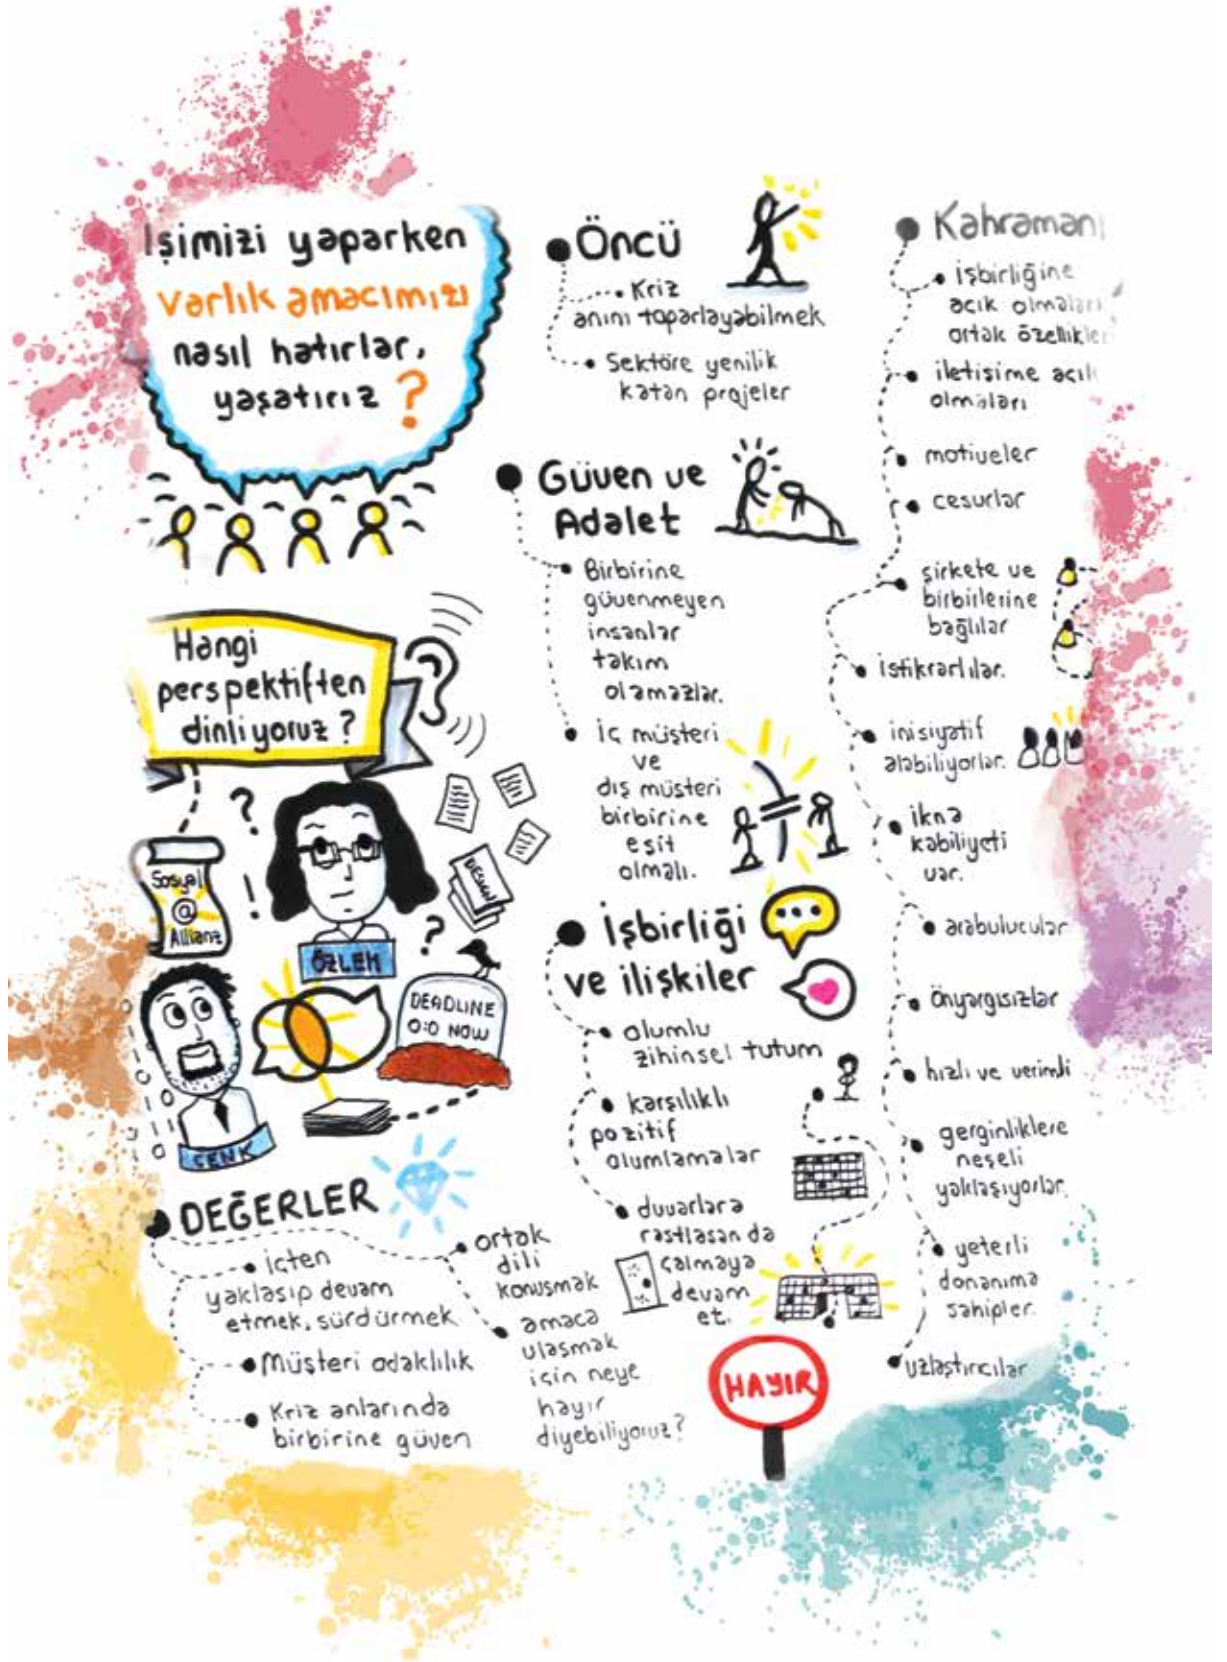 İşimizi yaparken
varlık amacımızı
nasıl hatırlar,
yaşatırız ?
Hangi
perspektiften
dinliyoruz ?
Sosyal
@
Allianz
?
!
ÖZLEM
?
DESIGN
DEADLINE
0:0 NOW
CENK
DEĞERLER
İçten
yaklaşıp devam
etmek, sürdürmek
Müşteri odaklılık
Kriz anlarında
birbirine güven
ortak
dili
konuşmak
amaca
ulaşmak
için neye
hayır
diyebiliyoruz?
Öncü
Kriz
anını toparlayabilmek
Sektöre yenilik
katan projeler
Güven ve
Adalet
Birbirine
güvenmeyen
insanlar
takım
olamazlar.
İç müşteri
ve
dış müşteri
birbirine
eşit
olmalı.
İşbirliği
ve ilişkiler
olumlu
zihinsel tutum
karşılıklı
pozitif
olumlamalar
duvarlara
rastlasan da
çalmaya
devam
et.
HAYIR
işbirliğine
açık olmaları
ortak
iletişime
olmaları
motiveler
cesurlar
şirkete ve
birbirlerine
bağlılar
istikrarlılar.
inisiyatif
alabiliyorlar.
ikna
kabiliyeti
var.
arabulucular
Önyargısızlar
hızlı ve verimli
gerginliklere
neşeli
yaklaşıyorlar.
yeterli
donanıma
sahipler.
uzlaştırıcılar